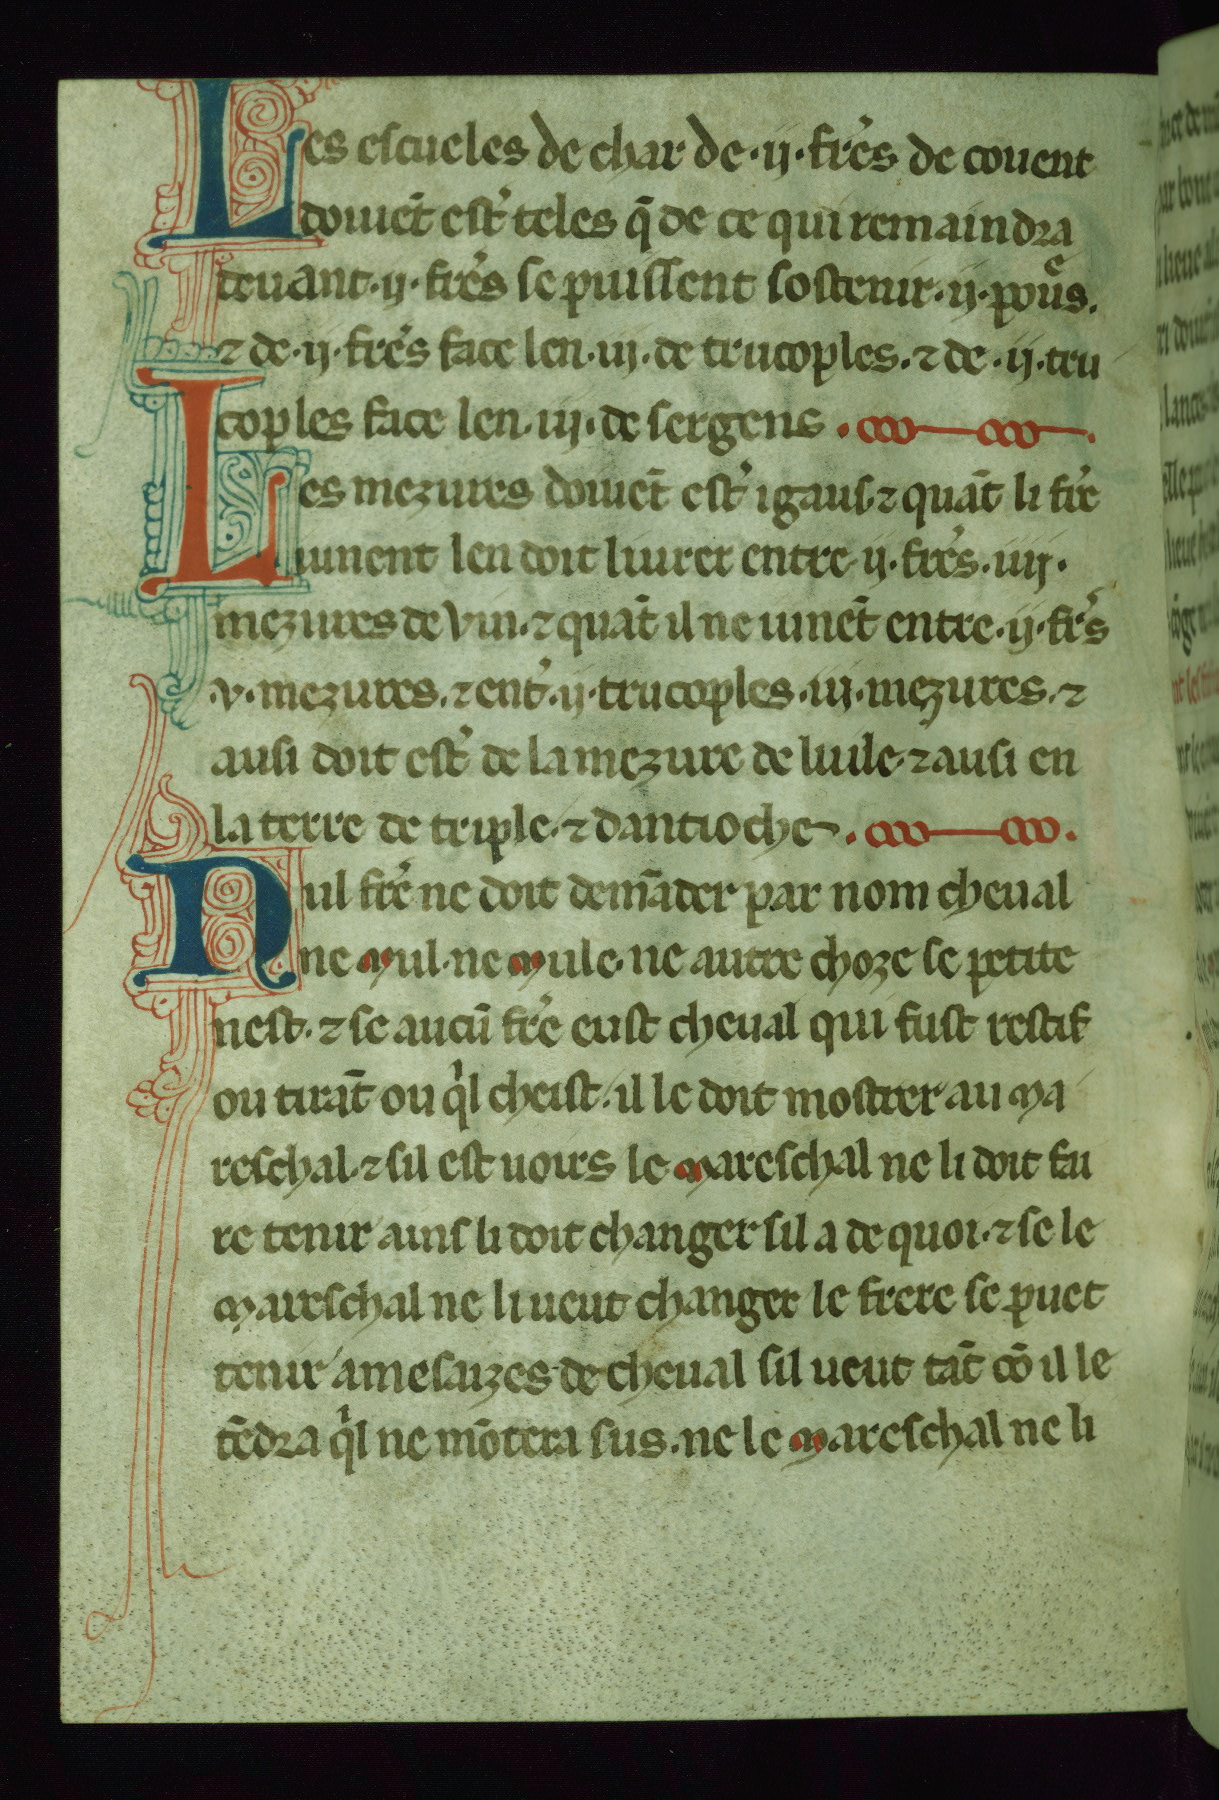 Les escueles de char de ·ij· fr̃es de couent
douiẽt est̉ teles q̃ de ce qui remaindra
deuant ·ij· fr̃es se puissent sostenir ·ij· poũs.
⁊ de ·ij· fr̃es face len ·iij· de trucoples. ⁊ de ·ij· tru
coples face len ·iij· de sergens.
Les mezures douiẽt est̉ igaus ⁊ quãt li fr̃e
iunent len doit liurer entre ·ij· fr̃es ·iiij·
mezures de vin. ⁊ quãt il ne iunẽt entre ·ij· fr̃s
·v· mezures. ⁊ ent̉ ·ij· trucoples ·iij· mezures. ⁊
ausi doit est̉ de la mezure de luile. ⁊ ausi en
la terre de triple. ⁊ dantioche.
Nul fr̃e ne doit demãder par nom cheual
ne mul. ne mule. ne autre choze se petite
nest. ⁊ se aucũ fr̃e eust cheual qui fust restif
ou tirãt ou qͥl cheist. il le doit mostrer au ma
reschal. ⁊ sil est uoirs le mareschal ne li doit fai
re tenir ains li doit changer sil a de quoi. ⁊ se le
mareschal ne li ueut changer le frere se puet
tenir a mesaizes de cheual sil ueut tãt cõ il le
tẽdra qͥl ne mõtera sus. ne le mareschal ne li